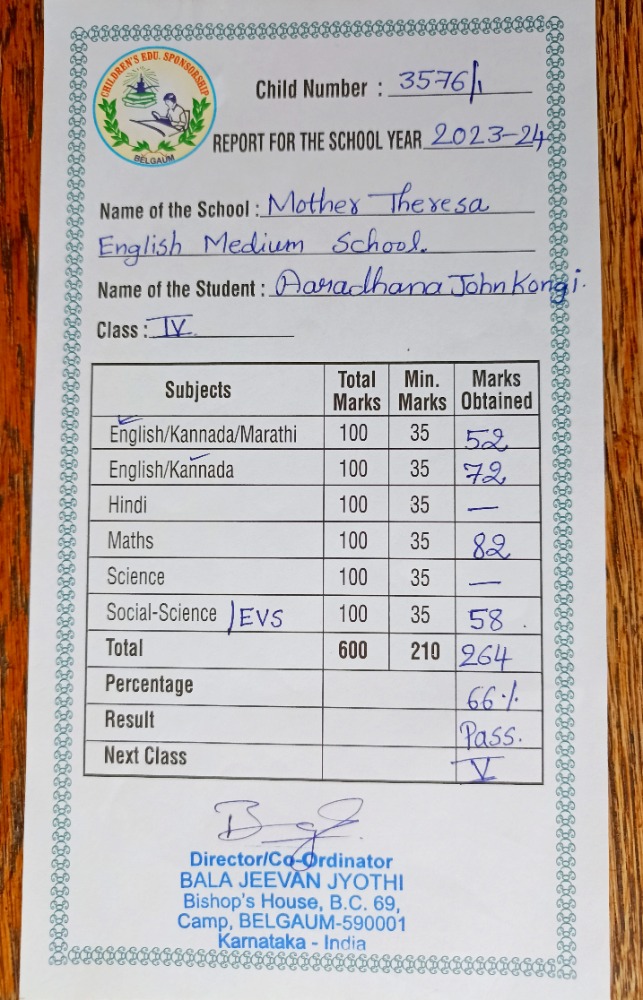 CHILDREN'S EDU. SPONSORSHIP
BELGAUM
Child Number : 3576/1
REPORT FOR THE SCHOOL YEAR 2023-24
Name of the School : Mother Theresa
English Medium School.
Name of the Student : Aaradhana John Kongi.
Class : IV
Subjects Total Marks Min. Marks Marks Obtained
English/Kannada/Marathi 100 35 52
English/Kannada 100 35 72
Hindi 100 35 —
Maths 100 35 82
Science 100 35 —
Social-Science /EVS 100 35 58
Total 600 210 264
Percentage 66%
Result Pass.
Next Class V
Director/Co-Ordinator
BALA JEEVAN JYOTHI
Bishop's House, B.C. 69,
Camp, BELGAUM-590001
Karnataka - India